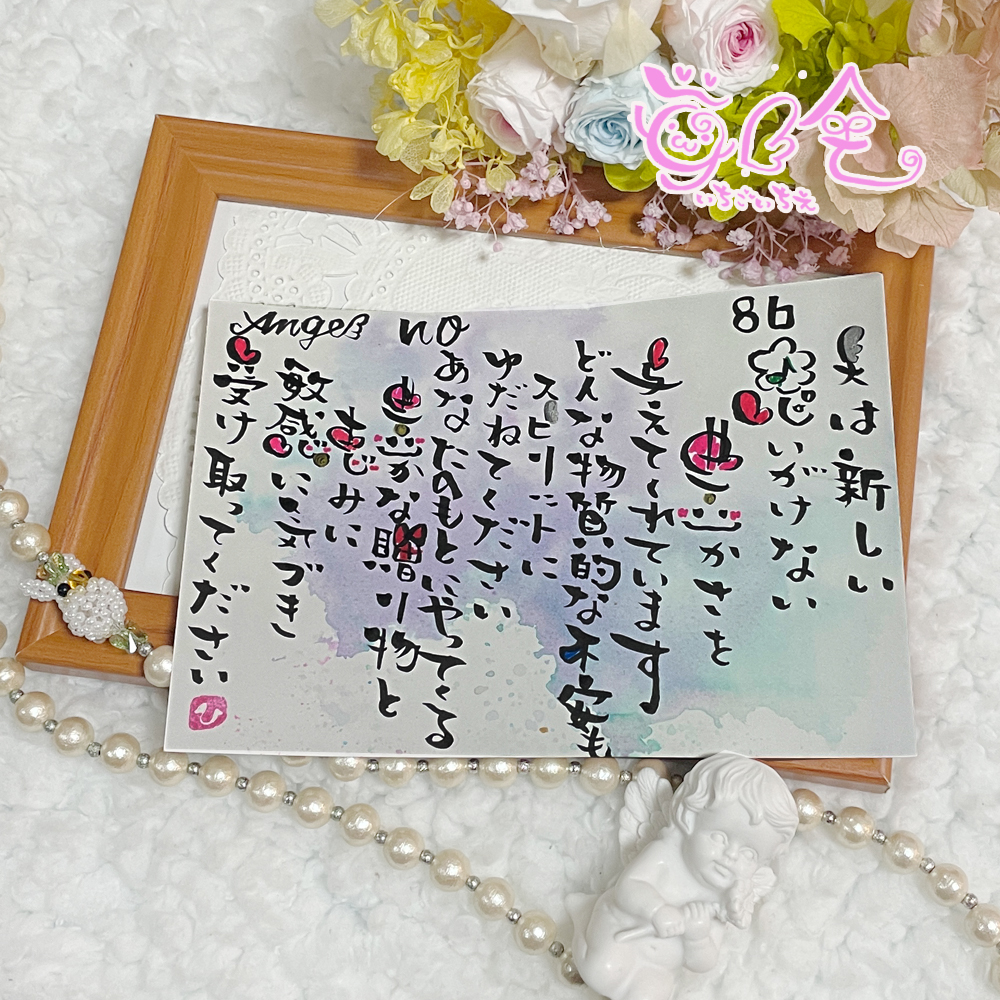 Angel no 86
天は新しい
思いがけない
豊かさを
与えてくれています
どんな物質的な不安も
スピリットに
ゆだねてください
あなたのもとにやってくる
豊かな贈り物と
恵みに
敏感に気づき
受け取ってください
いちごいちえ